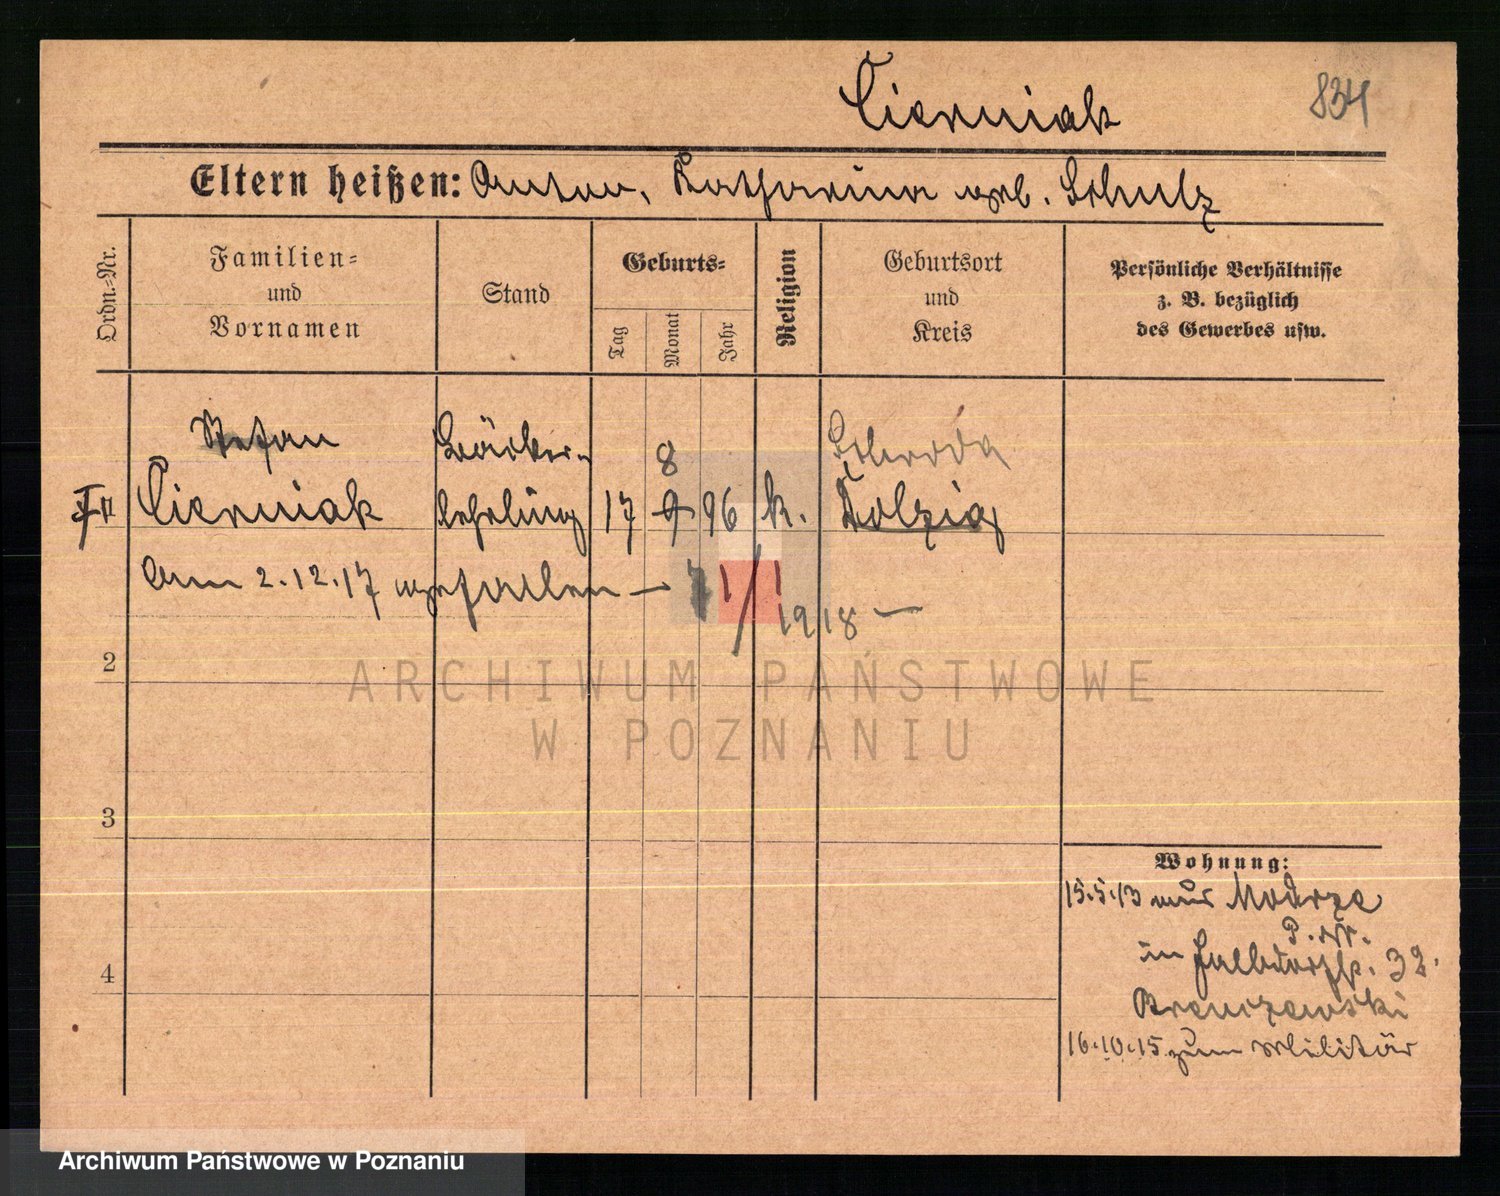 Cierniak 834
Eltern heißen: Anton, Katharina geb. Schulz
Ordn.-Nr.
Familien-
und
Vornamen
Stand
Geburts-
Tag
Monat
Jahr
Religion
Geburtsort
und
Kreis
Persönliche Verhältnisse
z. B. bezüglich
des Gewerbes usw.
Stefan
Cierniak
Bäcker-
lehrling
17 8 9 96 k.
Schroda
Dolzig
am 2.12.17 gefallen —
1918 —
2
3
4
ARCHIWUM PAŃSTWOWE
W POZNANIU
Wohnung:
15.5.13 aus Modrze
P. W.
in 32.
16.10.15 zum Militär
Archiwum Państwowe w Poznaniu